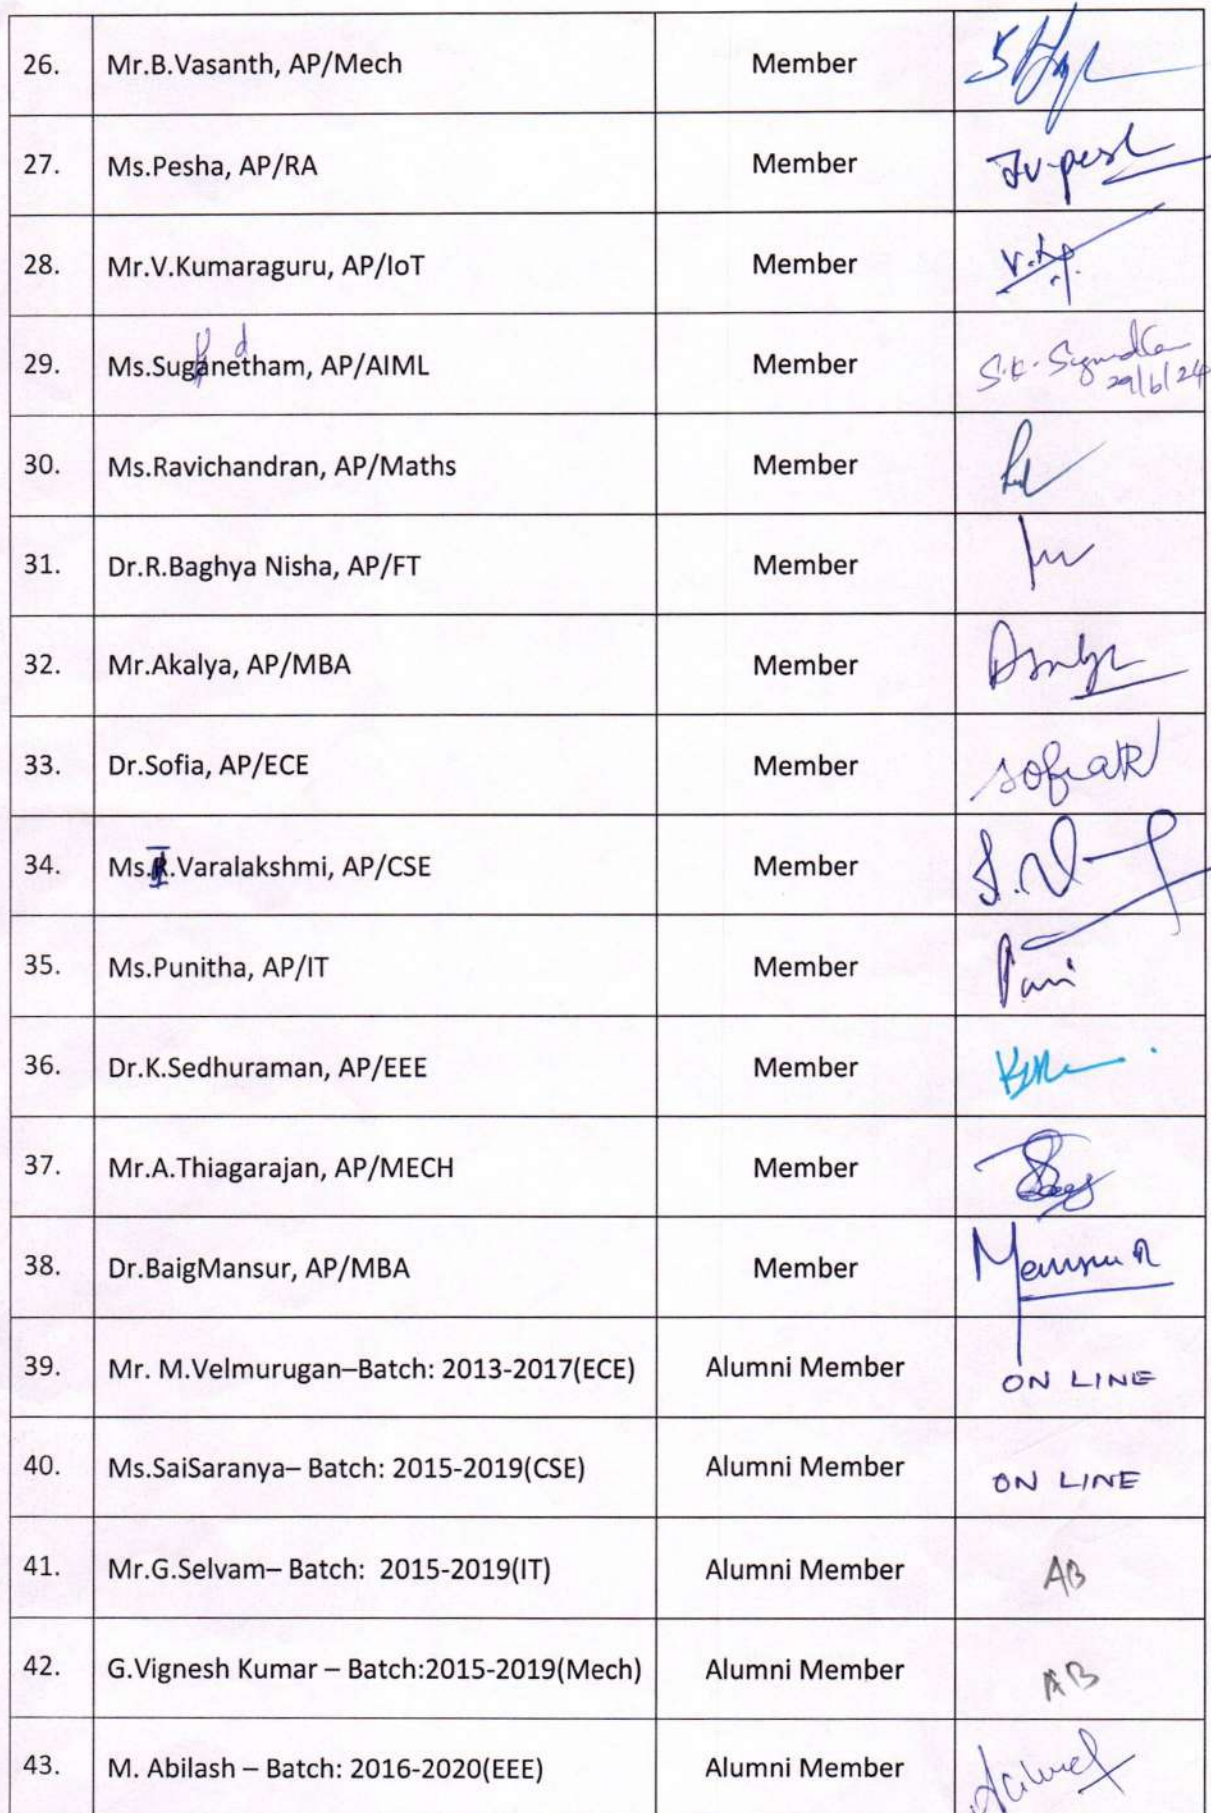 26. Mr.B.Vasanth, AP/Mech Member
27. Ms.Pesha, AP/RA Member
28. Mr.V.Kumaraguru, AP/IoT Member
29. Ms.Suganetham, AP/AIML Member 29/6/24
30. Ms.Ravichandran, AP/Maths Member
31. Dr.R.Baghya Nisha, AP/FT Member
32. Mr.Akalya, AP/MBA Member
33. Dr.Sofia, AP/ECE Member
34. Ms.I.Varalakshmi, AP/CSE Member
35. Ms.Punitha, AP/IT Member
36. Dr.K.Sedhuraman, AP/EEE Member
37. Mr.A.Thiagarajan, AP/MECH Member
38. Dr.BaigMansur, AP/MBA Member
39. Mr. M.Velmurugan–Batch: 2013-2017(ECE) Alumni Member ON LINE
40. Ms.SaiSaranya– Batch: 2015-2019(CSE) Alumni Member ON LINE
41. Mr.G.Selvam– Batch: 2015-2019(IT) Alumni Member AB
42. G.Vignesh Kumar – Batch:2015-2019(Mech) Alumni Member AB
43. M. Abilash – Batch: 2016-2020(EEE) Alumni Member